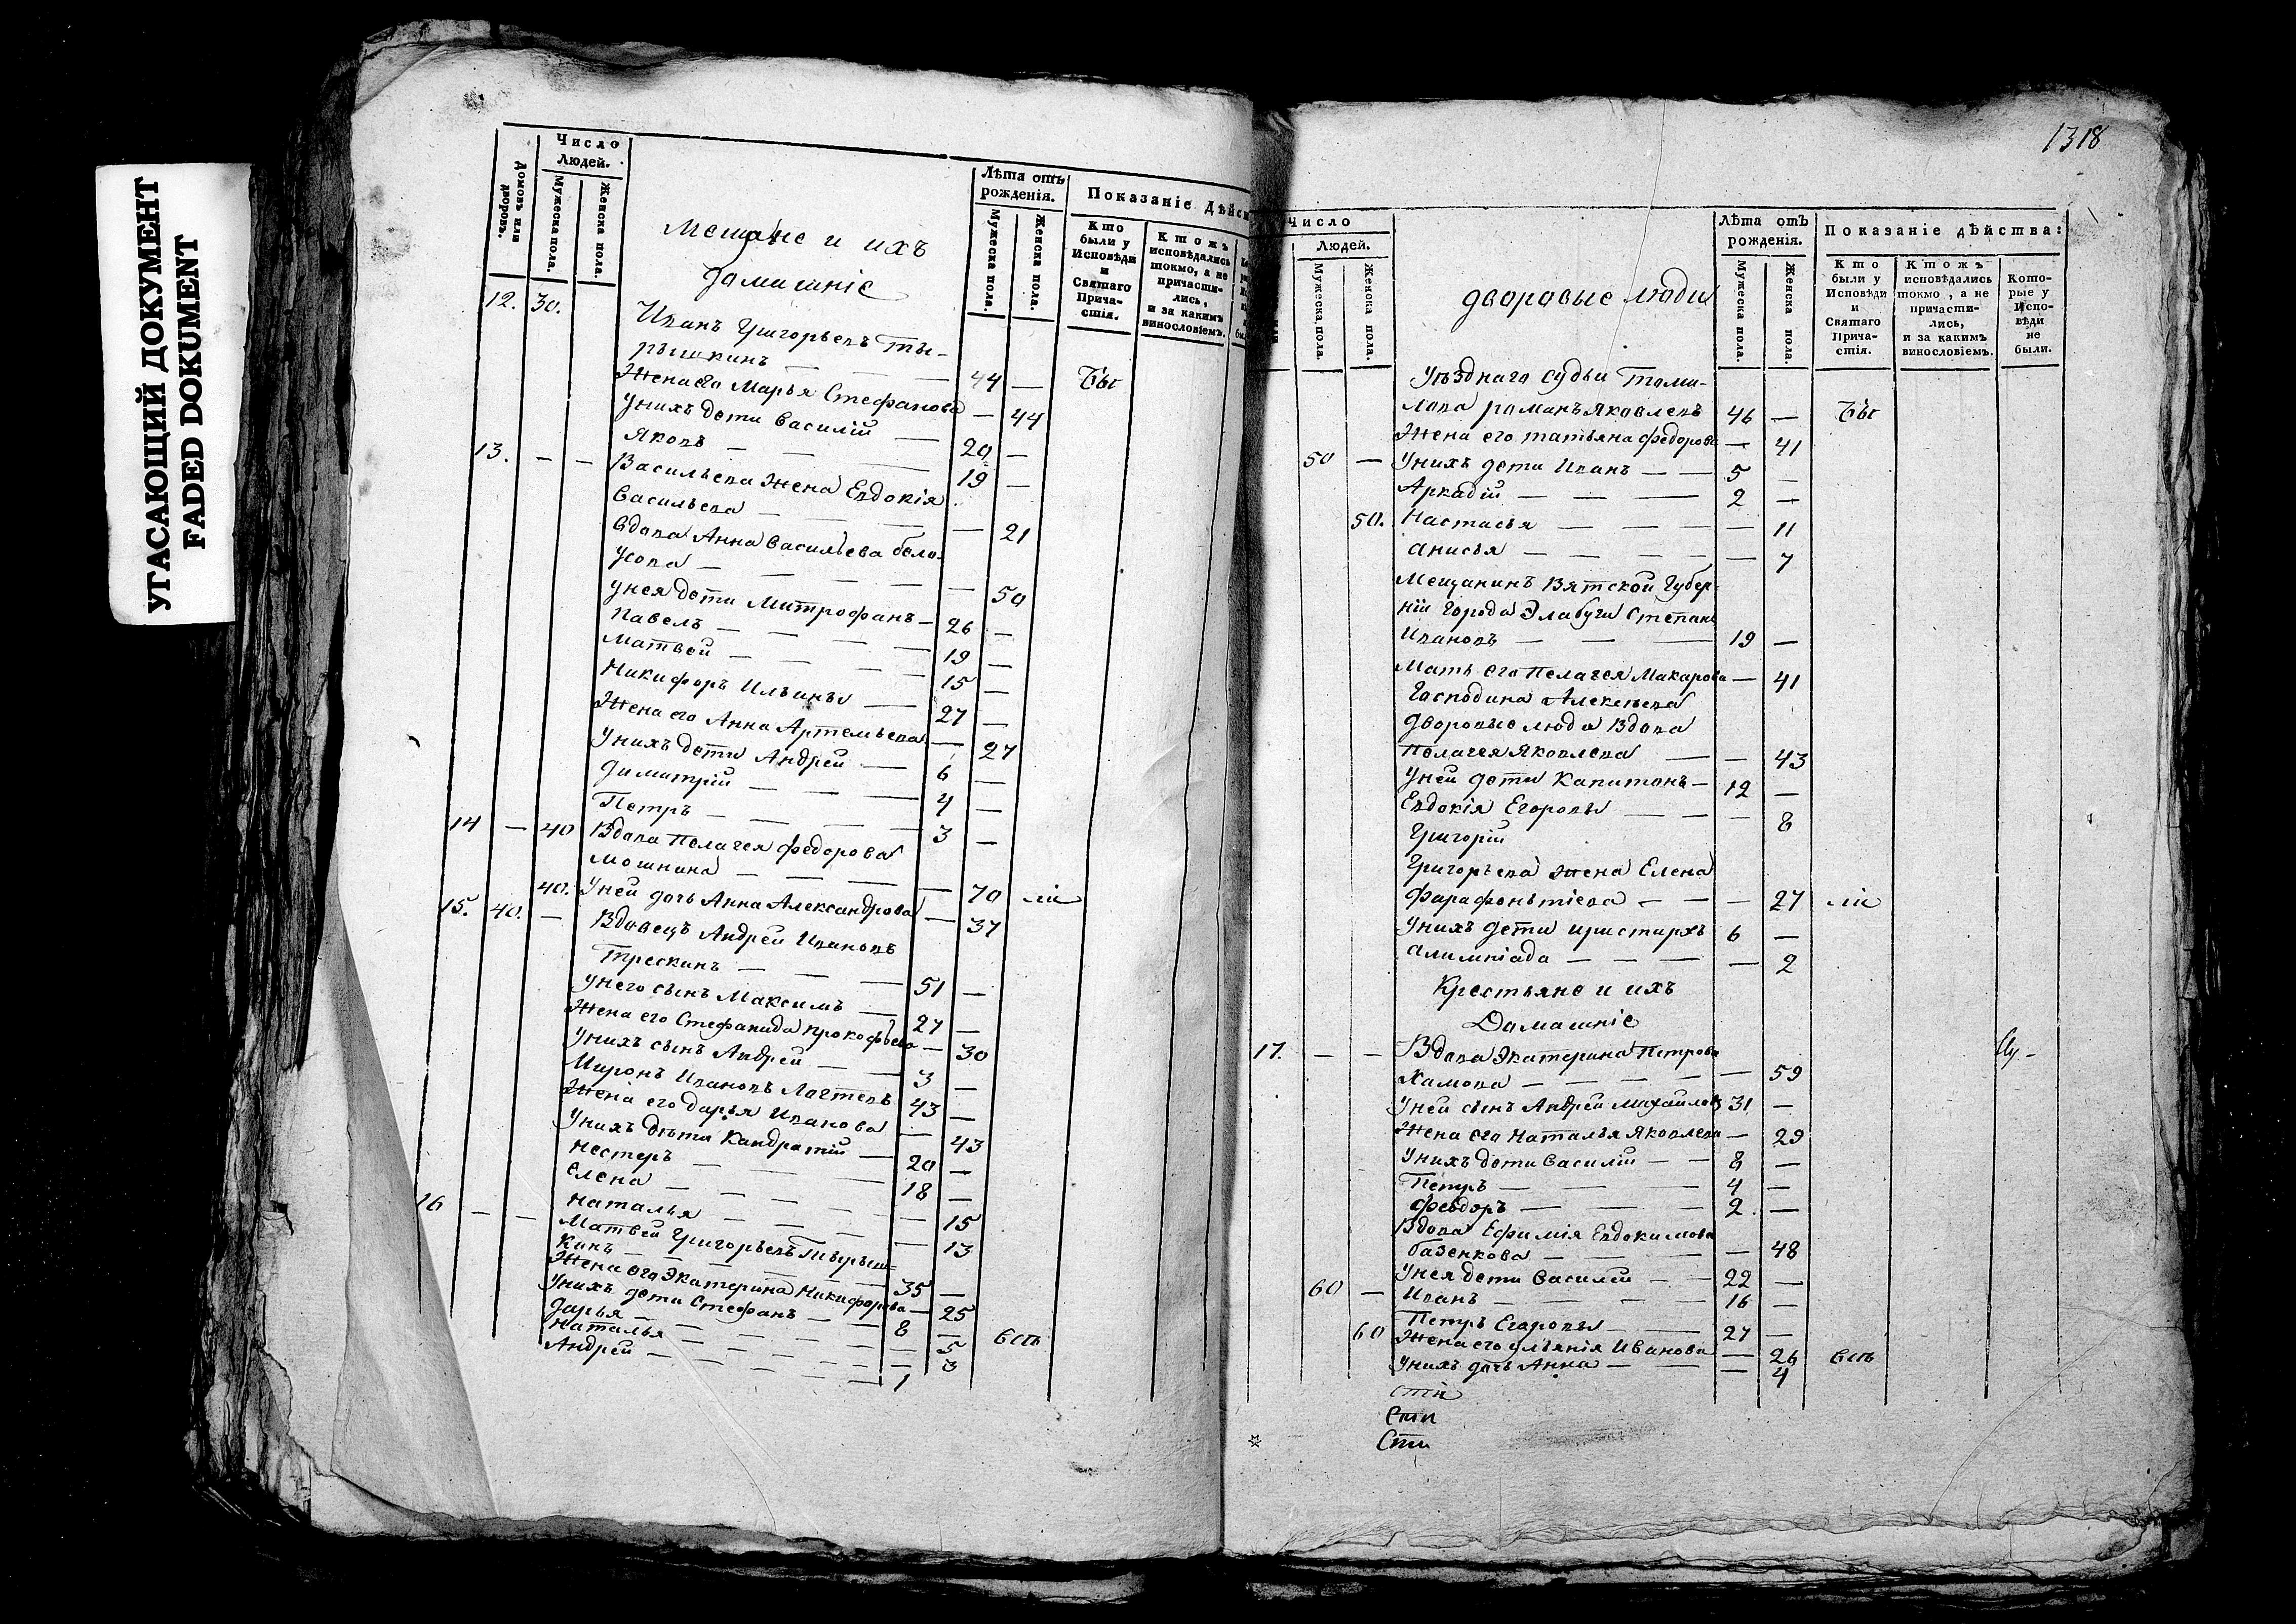 УГАСАЮЩИЙ ДОКУМЕНТ
FADED DOKUMENT
Домовъ или дворовъ.
Число Людей.
Мужеска пола.
Женска пола.
Мещане и ихъ
домашніе
Лѣта отъ рожденія.
Мужеска пола.
Женска пола.
Показаніе Дѣйс
Кто были у Исповѣди и Святаго Прича-стія.
Ктожъ исповѣдались токмо, а не причасти-лись, и за какимъ винословіемъ.
12. 30. Иванъ Григорьевъ Ты-
рышкинъ — — — 44 — Бы
Жена его Марья Стефанова — 44
Унихъ дети Василій — 20 —
Яковъ — — — 19 —
13. — — Васильева жена Евдокія
Васильева — — — — 21
Вдова Анна Васильева бело-
усова — — — — — 50
унея дети Митрофанъ — 26 —
Павелъ — — — 19 —
Матвей — — — 15 —
Никифоръ Ильинъ — 27 —
Жена его Анна Артемьева — 27
Унихъ дети Андрей — 6 —
Димитрій — — — 4 —
Петръ — — — 3 —
14 — 40 Вдова Пелагея Федорова
Мошнина — — — — 70 ли
40. Уней дочь Анна Александрова — 37
15. 40. — Вдовецъ Андрей Ивановъ
Трескинъ — — — 51 —
Унего сынъ Максимъ — 27 —
Жена его Стефанида Прокофьева — 30
Унихъ сынъ Андрей — — 3 —
Миронъ Ивановъ Лаптевъ 43 —
Жена его Дарья Иванова — 43
Унихъ дѣти Кандратій — 20 —
Нестеръ — — — 18 —
Елена — — — — 15
Наталья — — — — 13
16 — — Матвей Григорьевъ Тырыш-
кинъ — — — 35 —
Жена его Экатерина Никифорова — 25
Унихъ дети Стефанъ — — 8 —
Дарья — — — — 5 есть
Наталья — — — — 3
Андрей — — — — 1
1318
Число
Людей.
Мужеска пола.
Женска пола.
дворовые люди
Лѣта отъ рожденія.
Мужеска пола.
Женска пола.
Показаніе дѣйства:
Кто были у Исповѣди и Святаго Прича-стія.
Ктожъ исповѣдались токмо, а не причасти-лись, и за какимъ винословіемъ.
Кото-рые у Испо-вѣди не были.
Уѣзднаго судьи Томи-
лова романъ Яковлевъ 46 — Бы
Жена его татьяна федорова — 41
50 — Унихъ дети Иванъ — — 5 —
Аркадій — — — 2 —
50. Настасья — — — — 11
анисья — — — — 7
Мещанинъ Вятской Губер-
ніи города Элабуги Степанъ
Ивановъ — — — 19 —
Мать его Пелагея Макарова — 41
Господина Алексѣева
дворовые люди Вдова
Пелагея Яковлева — — 43
Уней дети Капитонъ — 12 —
Евдокія Егоровы — — — 8
Григорій
Григорьева жена Елена
Фарафоньтіева — — — 27 ли
Унихъ дети иристархъ 6 —
алимпіада — — — — 2
Крестьяне и ихъ
Домашніе
17. — — Вдова Экатерина Петрова
Хамова — — — — 59
Уней сынъ Андрей Михайловъ 31 —
Жена его Наталья Яковлева — 29
Унихъ дети Василій — — 8 —
Петръ — — — 4 —
Феодоръ — — — 2 —
Вдова Ефимія Евдокимова
базенкова — — — — 48
Унея дети Василей — — 22 —
60 — Иванъ — — — 16 —
Петръ Егоровы — — 27 —
60 Жена его ульянія Иванова — 26 есть
Унихъ дочь Анна — — — 4
Сти
Сти